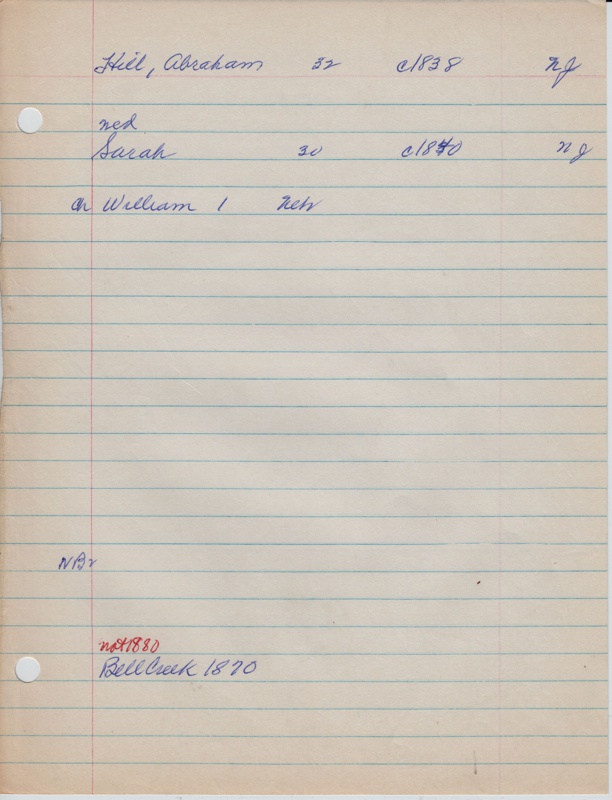 Hill, Abraham 32 c1838 NJ
med
Sarah 30 c1840 NJ
ch William 1 Neb
NB
not 1880
Bell Creek 1870